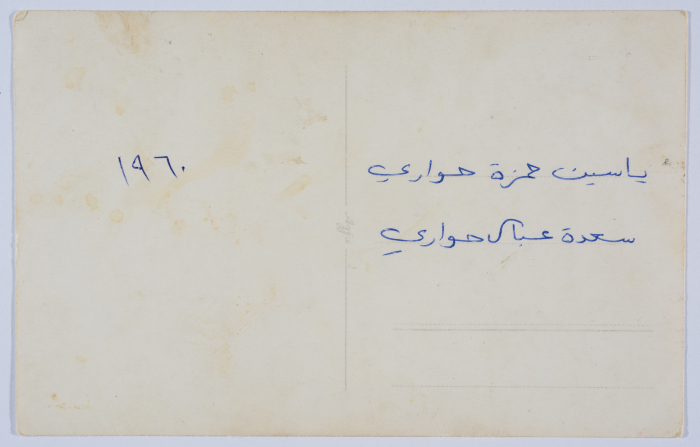 ياسين حمزة حواري
سعدة عباس حواري
١٩٦٠